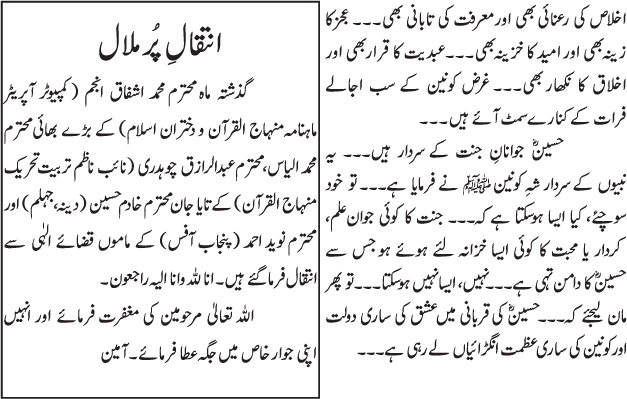 اخلاص کی رعنائی بھی اور معرفت کی تابانی بھی۔۔۔ عجز کا
زینہ بھی اور امید کا خزینہ بھی۔۔۔ عبدیت کا قرار بھی اور
اخلاق کا نکھار بھی۔۔۔ غرض کونین کے سب اجالے
فرات کے کنارے سمٹ آئے ہیں۔۔۔
حسینؓ جوانانِ جنت کے سردار ہیں۔۔۔ یہ
نبیوں کے سردار شہِ کونین ﷺ نے فرمایا ہے۔۔۔ تو خود
سوچئے، کیا ایسا ہوسکتا ہے کہ۔۔۔ جنت کا کوئی جوان علم،
کردار یا محبت کا کوئی ایسا خزانہ لئے ہوئے ہو جس سے
حسینؓ کا دامن تہی ہے۔۔۔ نہیں، ایسا نہیں ہوسکتا۔۔۔ تو پھر
مان لیجئے کہ۔۔۔ حسینؓ کی قربانی میں عشق کی ساری دولت
اور کونین کی ساری عظمت انگڑائیاں لے رہی ہے۔۔۔
انتقالِ پُر ملال
گذشتہ ماہ محترم محمد اشفاق انجم (کمپیوٹر آپریٹر
ماہنامہ منہاج القرآن و دختران اسلام) کے بڑے بھائی محترم
محمد الیاس، محترم عبدالرازق چوہدری (نائب ناظم تربیت تحریک
منہاج القرآن) کے تایا جان محترم خادم حسین (دینہ، جہلم) اور
محترم نوید احمد (پنجاب آفس) کے ماموں قضائے الٰہی سے
انتقال فرماگئے ہیں۔ انا للہ وانا الیہ راجعون۔
اللہ تعالیٰ مرحومین کی مغفرت فرمائے اور انہیں
اپنی جوار خاص میں جگہ عطا فرمائے۔ آمین